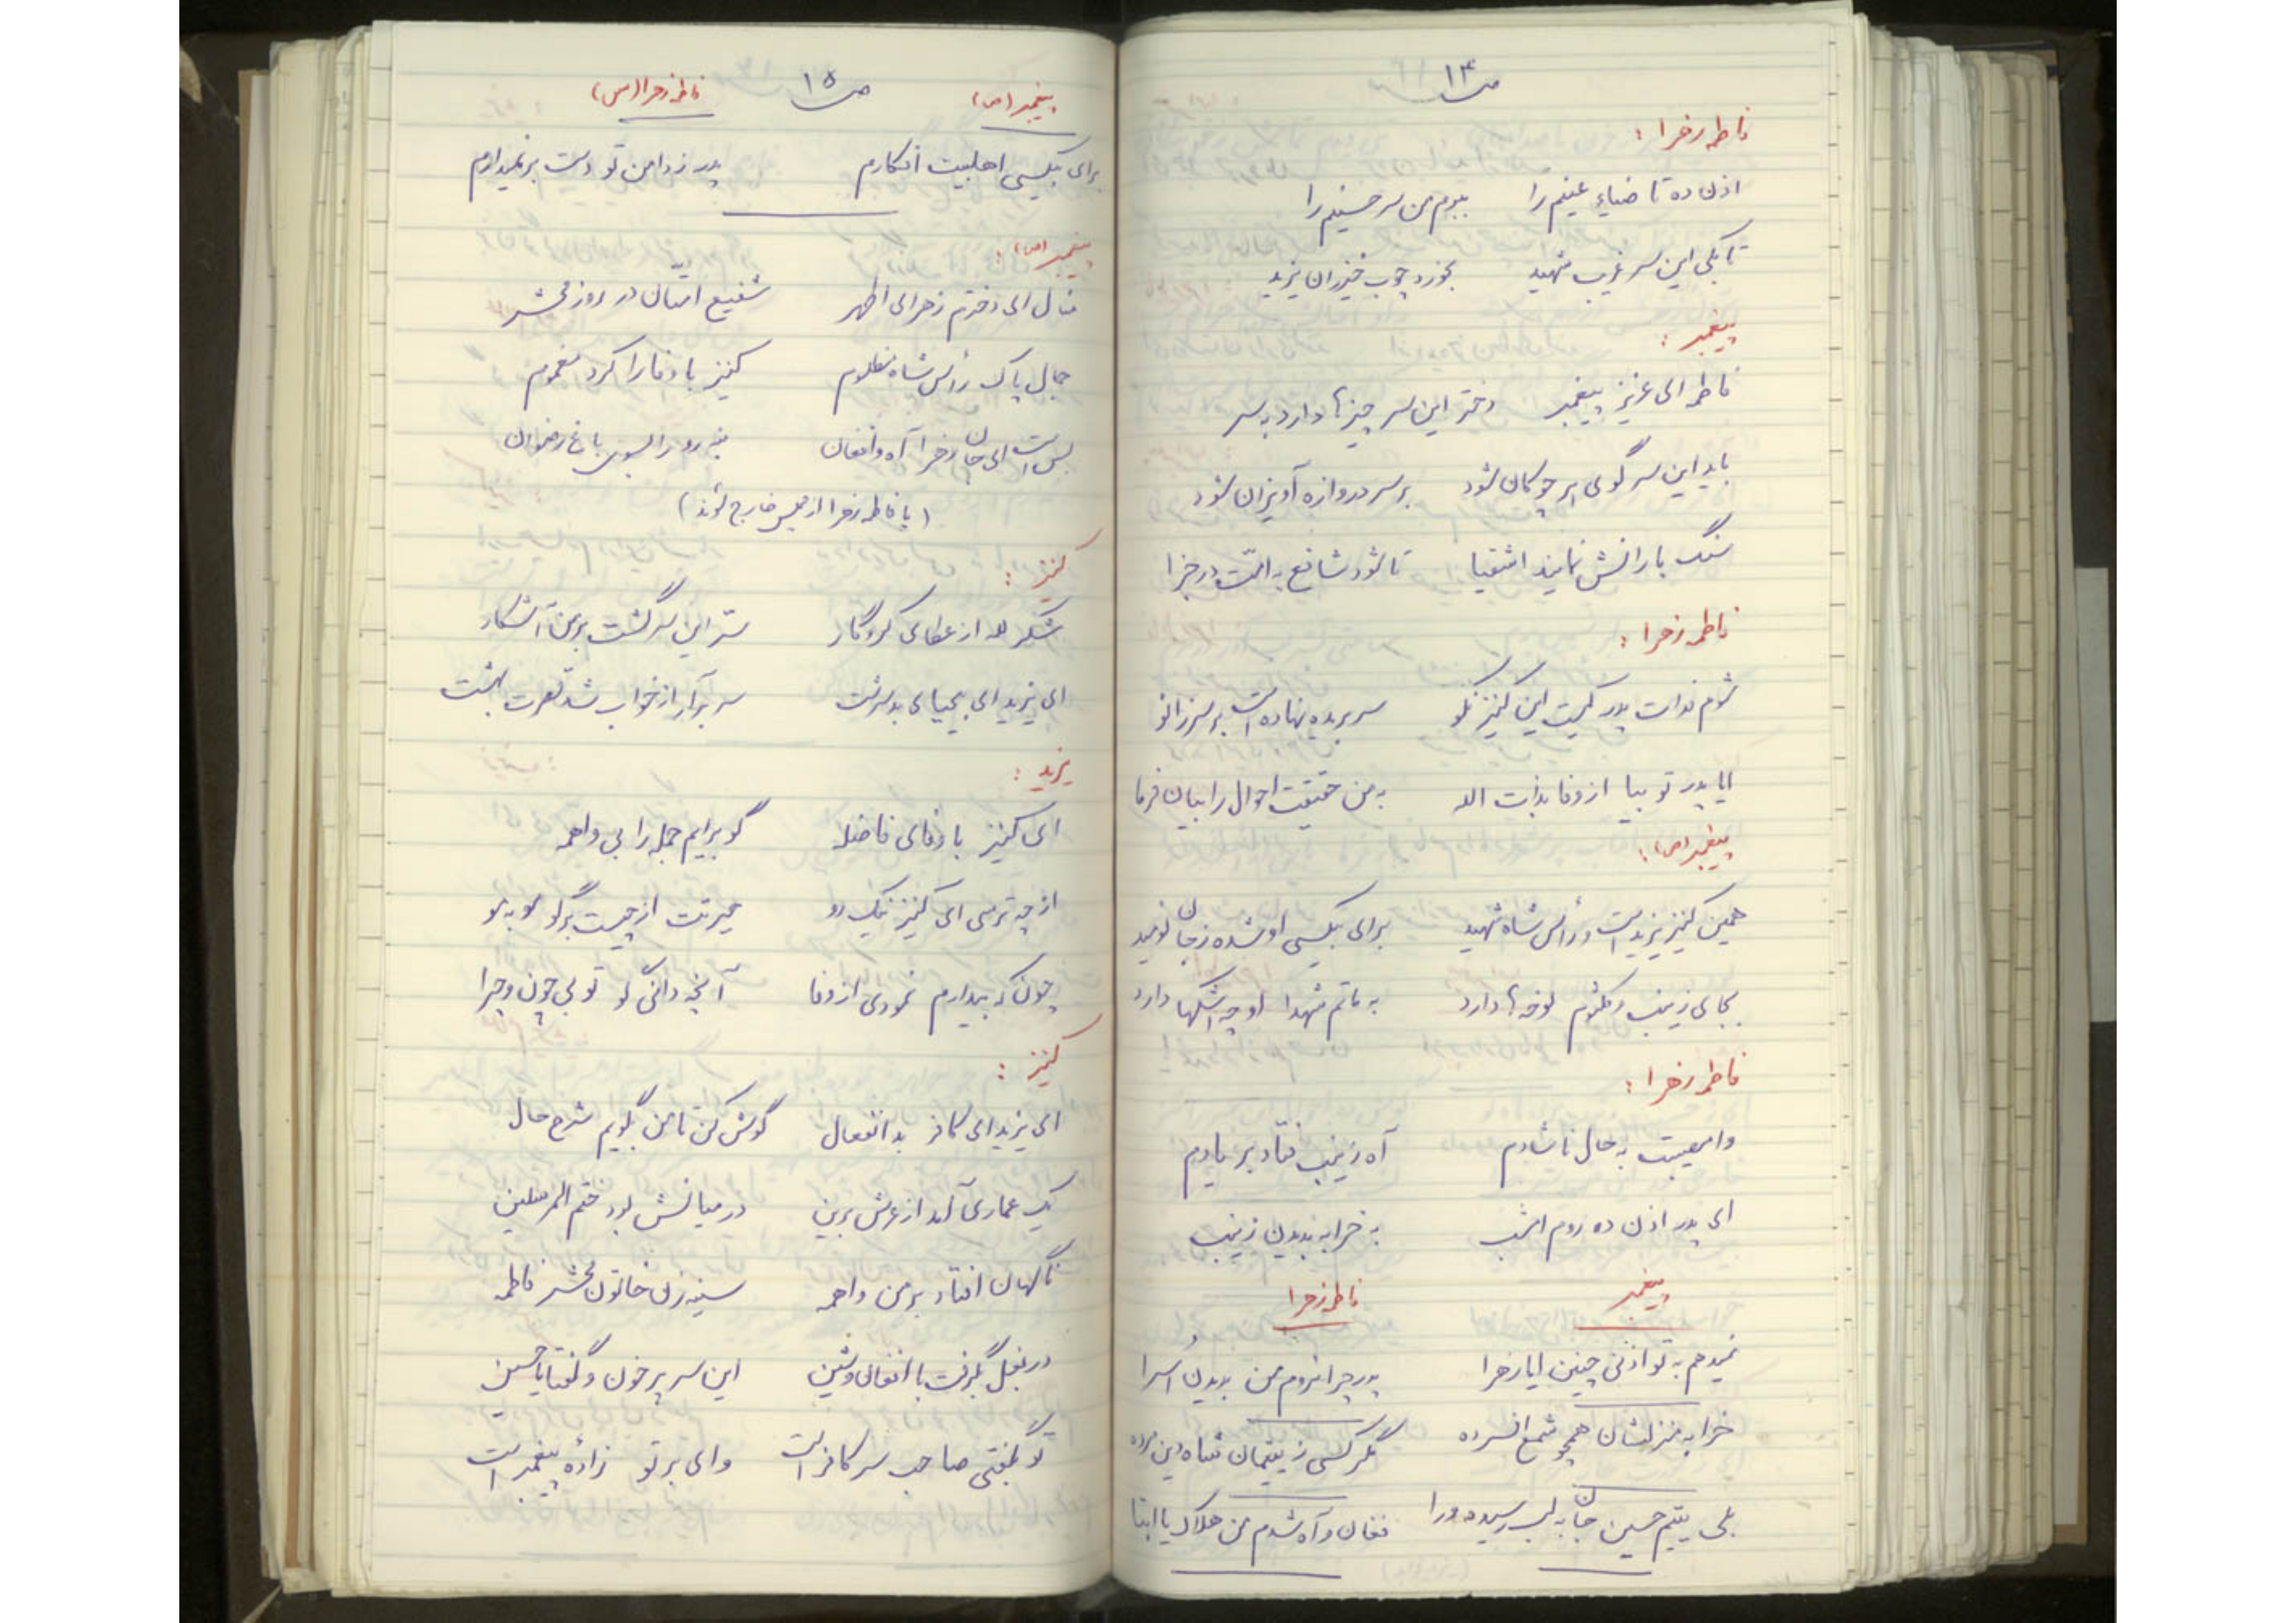 ص ۱۴
فاطمه زهرا :
اذن ده تا ضیاء عینم را ببرم من سر حسینم را
تا بکی این سر غریب شهید بخورد چوب خیزران یزید
پیغمبر :
فاطمه ای عزیز پیغمبر دختر این سر چیزها دارد به سر
باید این سر گوی هر چوگان شود بر سر دروازه آویزان شود
سنگ بارانش نمایند اشقیا تا شود شافع به امّت در جزا
فاطمه زهرا :
شوم فدات پدر کیست این کنیز نکو سر بریده نهاده است بر سر زانو
ایا پدر تو بیا از وفا بذات الله به من حقیقت احوال را بیان فرما
پیغمبر (ص) :
همین کنیز یزید است و رأس شاه شهید برای بیکسی او شده ز جان نومید
بجای زینب و کلثوم نوحه‌ها دارد به ماتم شهدا او چه اشکها دارد
فاطمه زهرا :
وامصیبت به حال ناشادم آه زینب فتاد بر یادم
ای پدر اذن ده روم امشب به خرابه بدیدن زینب
پیغمبر فاطمه زهرا
نمیدهم به تو اذنی چنین ایا زهرا پدر چرا نروم من بدیدن اُسرا
خرابه منزلشان همچو شمع افسرده مگر کسی ز یتیمان شاه دین مرده
بلی یتیم حسین جان به لب رسیده ورا فغان و آه شدم من هلاک یا ابتا
ص ۱۵
پیغمبر (ص) فاطمه زهرا (س)
برای بیکسی اهلبیت افکارم پدر ز دامن تو دست بر نمیدارم
پیغمبر (ص) :
منال ای دخترم زهرای اطهر شفیع امّتان در روز محشر
جمال پاک رأس شاه مظلوم کنیز با وفا را کرد مغموم
بس است ای جان زهرا آه و افغان بنه رو را بسوی باغ رضوان
(با فاطمه زهرا از مجلس خارج شوند)
کنیز :
شکر لله از عطای کردگار سّر این سر گشت بر من آشکار
ای یزید ای بیحیای بد سرشت سر برآر از خواب شد قصرت بهشت
یزید :
ای کنیز با وفای فاضله گو برایم جمله را بی واهمه
از چه ترسی ای کنیز نیک رو حیرتت از چیست برگو مو به مو
چونکه بیدارم نمودی از وفا آنچه دانی گو تو بی چون و چرا
کنیز :
ای یزید ای کافر بد انفعال گوش کن تا من بگویم شرح حال
یک عماری آمد از عرش برین در میانش بود ختم المرسلین
ناگهان افتاد بر من واهمه سینه زن خاتون محشر فاطمه
در بغل بگرفت با افغان و شین این سر پر خون و گفتا یا حسین
تو بگفتی صاحب سر کافر است وای بر تو زادهٔ پیغمبر است